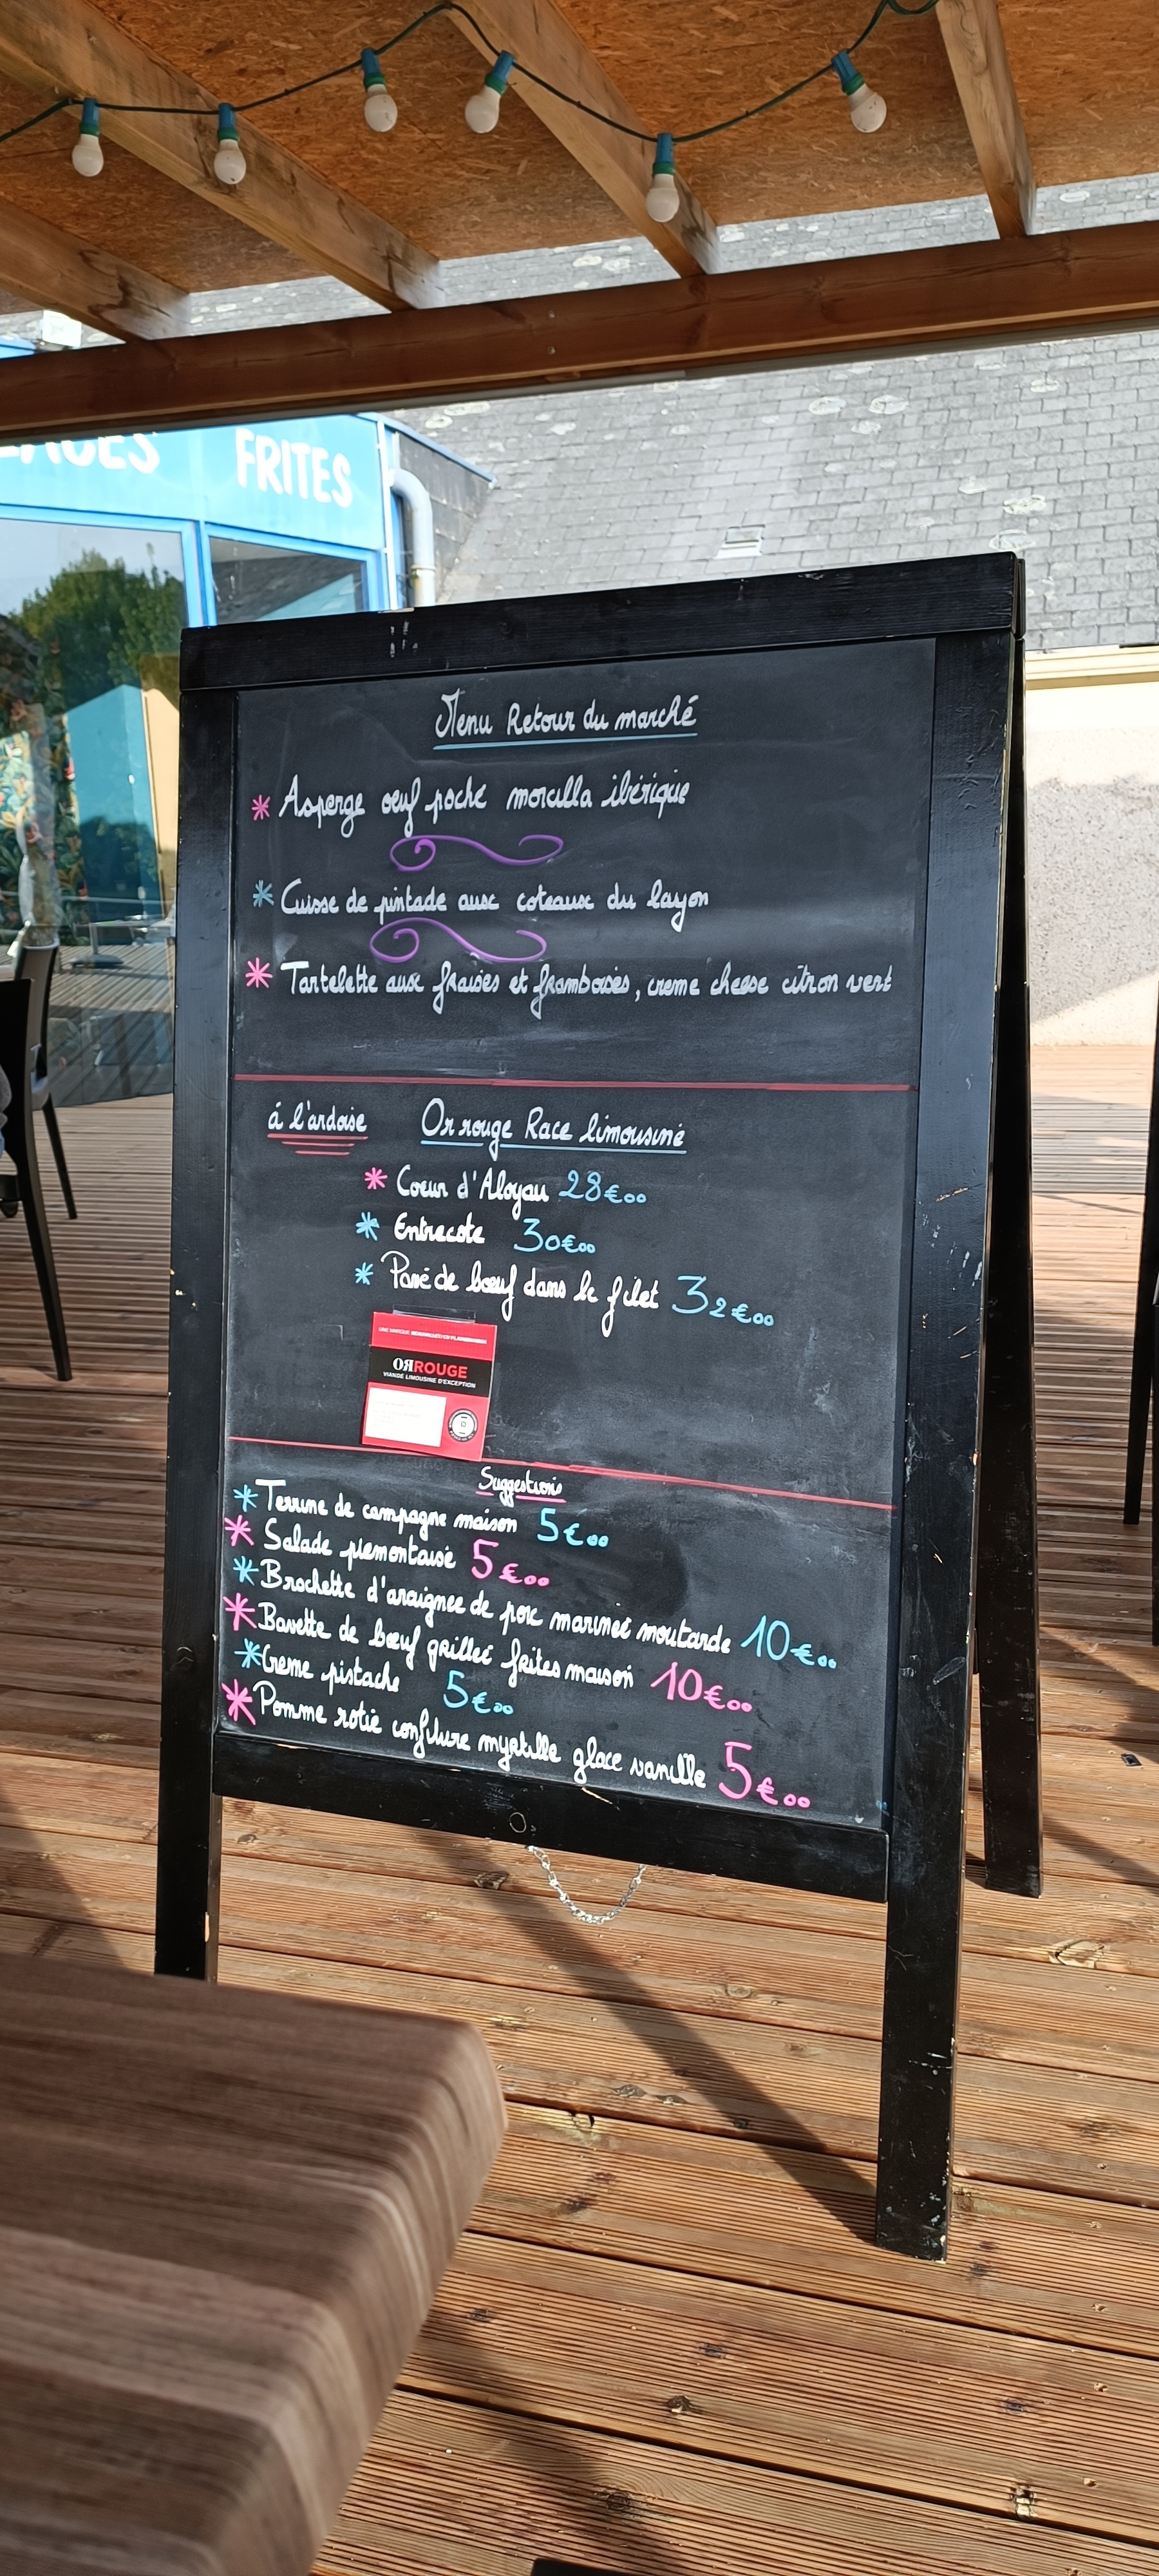 FRITES
Menu Retour du marché
* Asperge oeuf poché morcilla ibérique
* Cuisse de pintade aux coteaux du layon
* Tartelette aux fraises et framboises, creme cheese citron vert
á l'ardoise
Or rouge Race limousine
* Coeur d'Aloyau 28€00
* Entrecote 30€00
* Pavé de bœuf dans le filet 32€00
ORROUGE
VIANDE LIMOUSINE D'EXCEPTION
Suggestions
* Terrine de campagne maison 5€00
* Salade piemontaise 5€00
* Brochette d'araignee de porc marineé moutarde 10€00
* Bavette de bœuf grilleé frites maison 10€00
* Creme pistache 5€00
* Pomme rotie confiture myrtille glace vanille 5€00